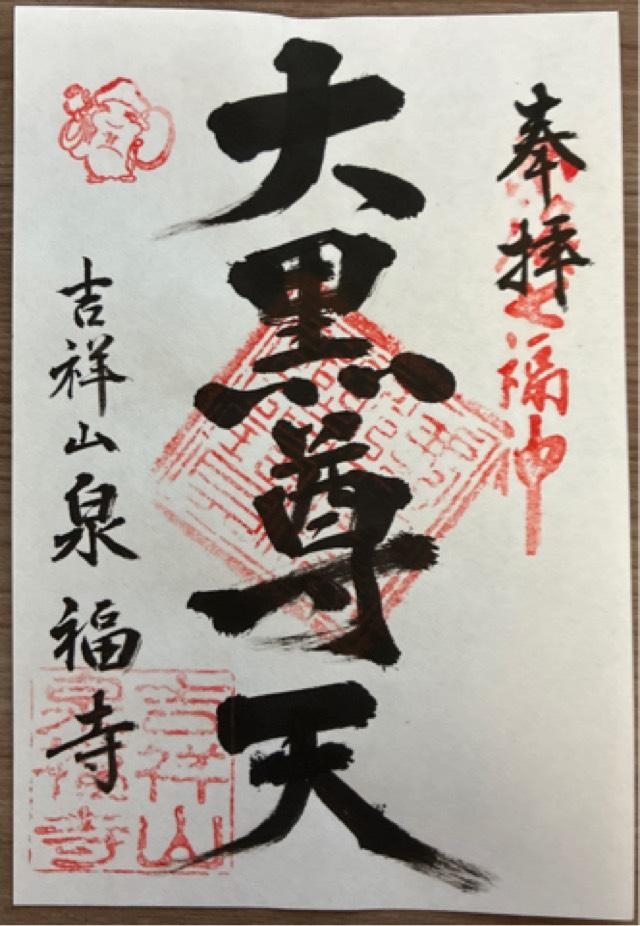 奉拝
七福神
大黒尊天
吉祥山泉福寺
吉祥山
泉福寺